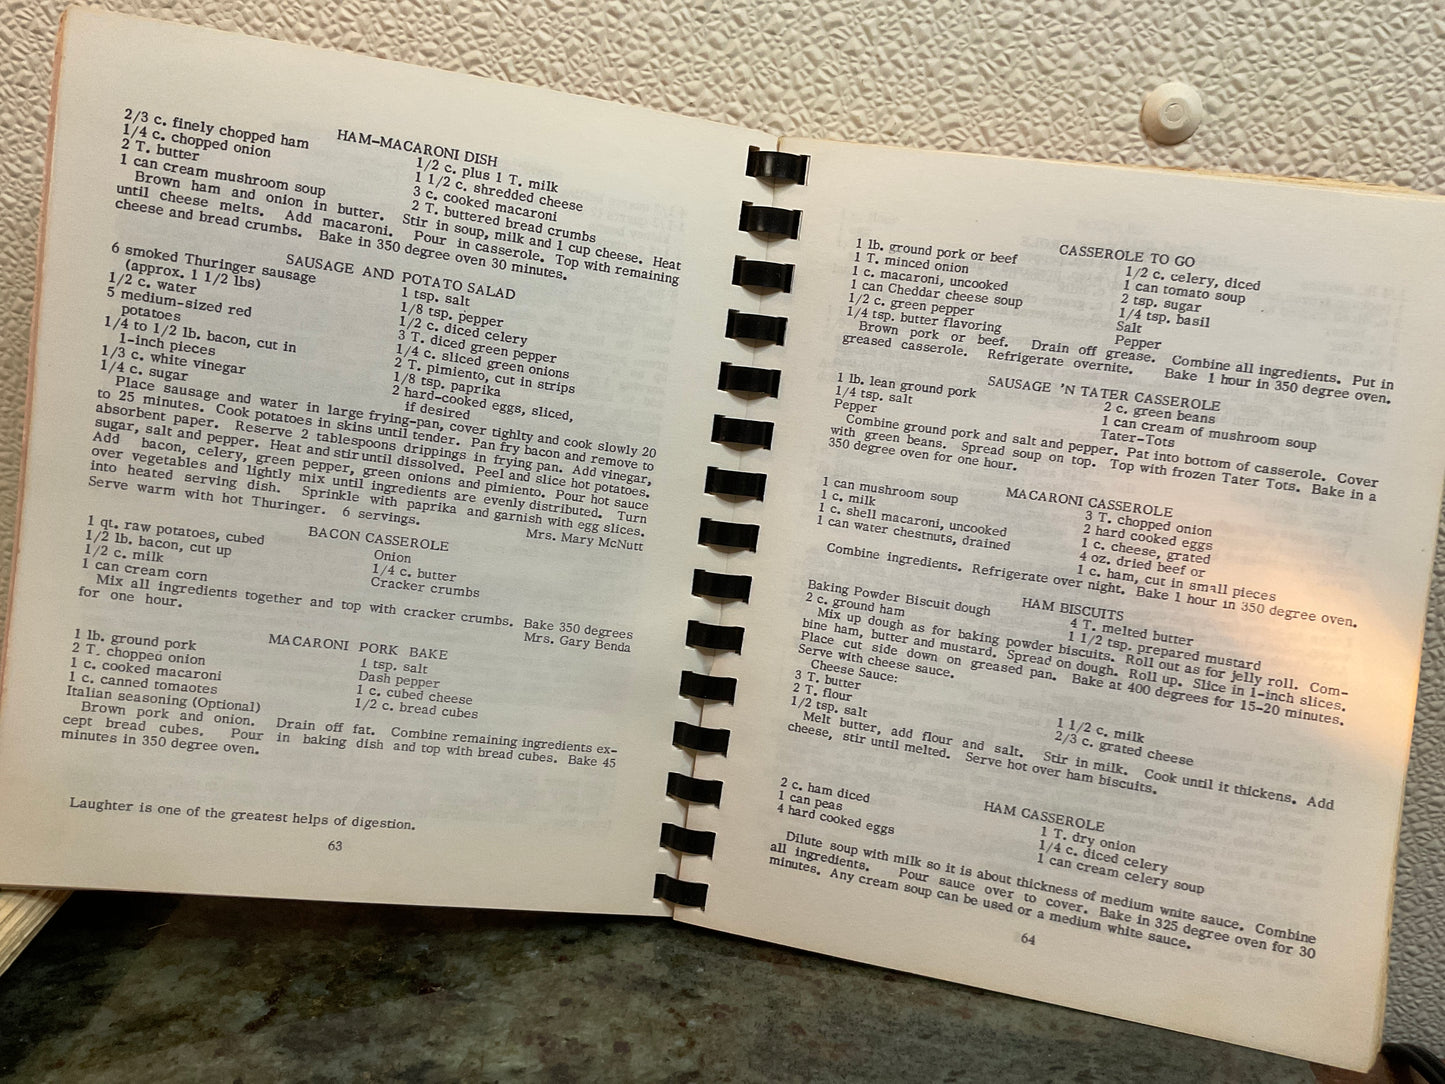 HAM-MACARONI DISH
2/3 c. finely chopped ham
1/4 c. chopped onion
2 T. butter
1 can cream mushroom soup
1/2 c. plus 1 T. milk
1 1/2 c. shredded cheese
3 c. cooked macaroni
2 T. buttered bread crumbs
Brown ham and onion in butter. Stir in soup, milk and 1 cup cheese. Heat
until cheese melts. Add macaroni. Pour in casserole. Top with remaining
cheese and bread crumbs. Bake in 350 degree oven 30 minutes.
SAUSAGE AND POTATO SALAD
6 smoked Thuringer sausage
(approx. 1 1/2 lbs)
1/2 c. water
5 medium-sized red
potatoes
1/4 to 1/2 lb. bacon, cut in
1-inch pieces
1/3 c. white vinegar
1/4 c. sugar
1 tsp. salt
1/8 tsp. pepper
1/2 c. diced celery
3 T. diced green pepper
1/4 c. sliced green onions
2 T. pimiento, cut in strips
1/8 tsp. paprika
2 hard-cooked eggs, sliced,
if desired
Place sausage and water in large frying-pan, cover tighlty and cook slowly 20
to 25 minutes. Cook potatoes in skins until tender. Pan fry bacon and remove to
absorbent paper. Reserve 2 tablespoons drippings in frying pan. Add vinegar,
sugar, salt and pepper. Heat and stir until dissolved. Peel and slice hot potatoes.
Add bacon, celery, green pepper, green onions and pimiento. Pour hot sauce
over vegetables and lightly mix until ingredients are evenly distributed. Turn
into heated serving dish. Sprinkle with paprika and garnish with egg slices.
Serve warm with hot Thuringer. 6 servings.
Mrs. Mary McNutt
BACON CASSEROLE
1 qt. raw potatoes, cubed
1/2 lb. bacon, cut up
1/2 c. milk
1 can cream corn
Onion
1/4 c. butter
Cracker crumbs
Mix all ingredients together and top with cracker crumbs. Bake 350 degrees
for one hour.
Mrs. Gary Benda
MACARONI PORK BAKE
1 lb. ground pork
2 T. chopped onion
1 c. cooked macaroni
1 c. canned tomaotes
Italian seasoning (Optional)
1 tsp. salt
Dash pepper
1 c. cubed cheese
1/2 c. bread cubes
Brown pork and onion. Drain off fat. Combine remaining ingredients ex-
cept bread cubes. Pour in baking dish and top with bread cubes. Bake 45
minutes in 350 degree oven.
Laughter is one of the greatest helps of digestion.
63
CASSEROLE TO GO
1 lb. ground pork or beef
1 T. minced onion
1 c. macaroni, uncooked
1 can Cheddar cheese soup
1/2 c. green pepper
1/4 tsp. butter flavoring
1/2 c. celery, diced
1 can tomato soup
2 tsp. sugar
1/4 tsp. basil
Salt
Pepper
Brown pork or beef. Drain off grease. Combine all ingredients. Put in
greased casserole. Refrigerate overnite. Bake 1 hour in 350 degree oven.
SAUSAGE 'N TATER CASSEROLE
1 lb. lean ground pork
1/4 tsp. salt
Pepper
2 c. green beans
1 can cream of mushroom soup
Tater-Tots
Combine ground pork and salt and pepper. Pat into bottom of casserole. Cover
with green beans. Spread soup on top. Top with frozen Tater Tots. Bake in a
350 degree oven for one hour.
MACARONI CASSEROLE
1 can mushroom soup
1 c. milk
1 c. shell macaroni, uncooked
1 can water chestnuts, drained
3 T. chopped onion
2 hard cooked eggs
1 c. cheese, grated
4 oz. dried beef or
1 c. ham, cut in small pieces
Combine ingredients. Refrigerate over night. Bake 1 hour in 350 degree oven.
HAM BISCUITS
Baking Powder Biscuit dough
2 c. ground ham
4 T. melted butter
1 1/2 tsp. prepared mustard
Mix up dough as for baking powder biscuits. Roll out as for jelly roll. Com-
bine ham, butter and mustard. Spread on dough. Roll up. Slice in 1-inch slices.
Place cut side down on greased pan. Bake at 400 degrees for 15-20 minutes.
Serve with cheese sauce.
Cheese Sauce:
3 T. butter
2 T. flour
1/2 tsp. salt
1 1/2 c. milk
2/3 c. grated cheese
Melt butter, add flour and salt. Stir in milk. Cook until it thickens. Add
cheese, stir until melted. Serve hot over ham biscuits.
HAM CASSEROLE
2 c. ham diced
1 can peas
4 hard cooked eggs
1 T. dry onion
1/4 c. diced celery
1 can cream celery soup
Dilute soup with milk so it is about thickness of medium wnite sauce. Combine
all ingredients. Pour sauce over to cover. Bake in 325 degree oven for 30
minutes. Any cream soup can be used or a medium white sauce.
64